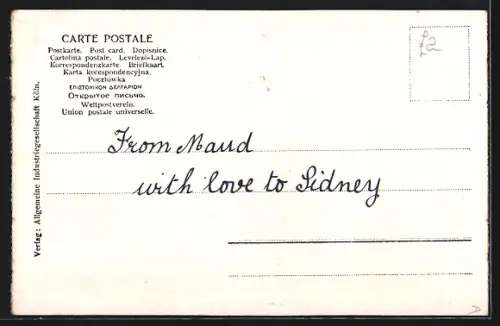 CARTE POSTALE
Postkarte. Post card. Dopisnice.
Cartolina postale. Levelezö-Lap.
Korrespondenzkarte. Briefkaart.
Karta korespondencyjna.
Pocztówka
ΕΠΙΣΤΟΛΙΚΟΝ ΔΕΛΤΑΡΙΟΝ
Открытое письмо.
Weltpostverein.
Union postale universelle.
£2
From Maud
with love to Sidney
Verlag: Allgemeine Industriegesellschaft Köln.